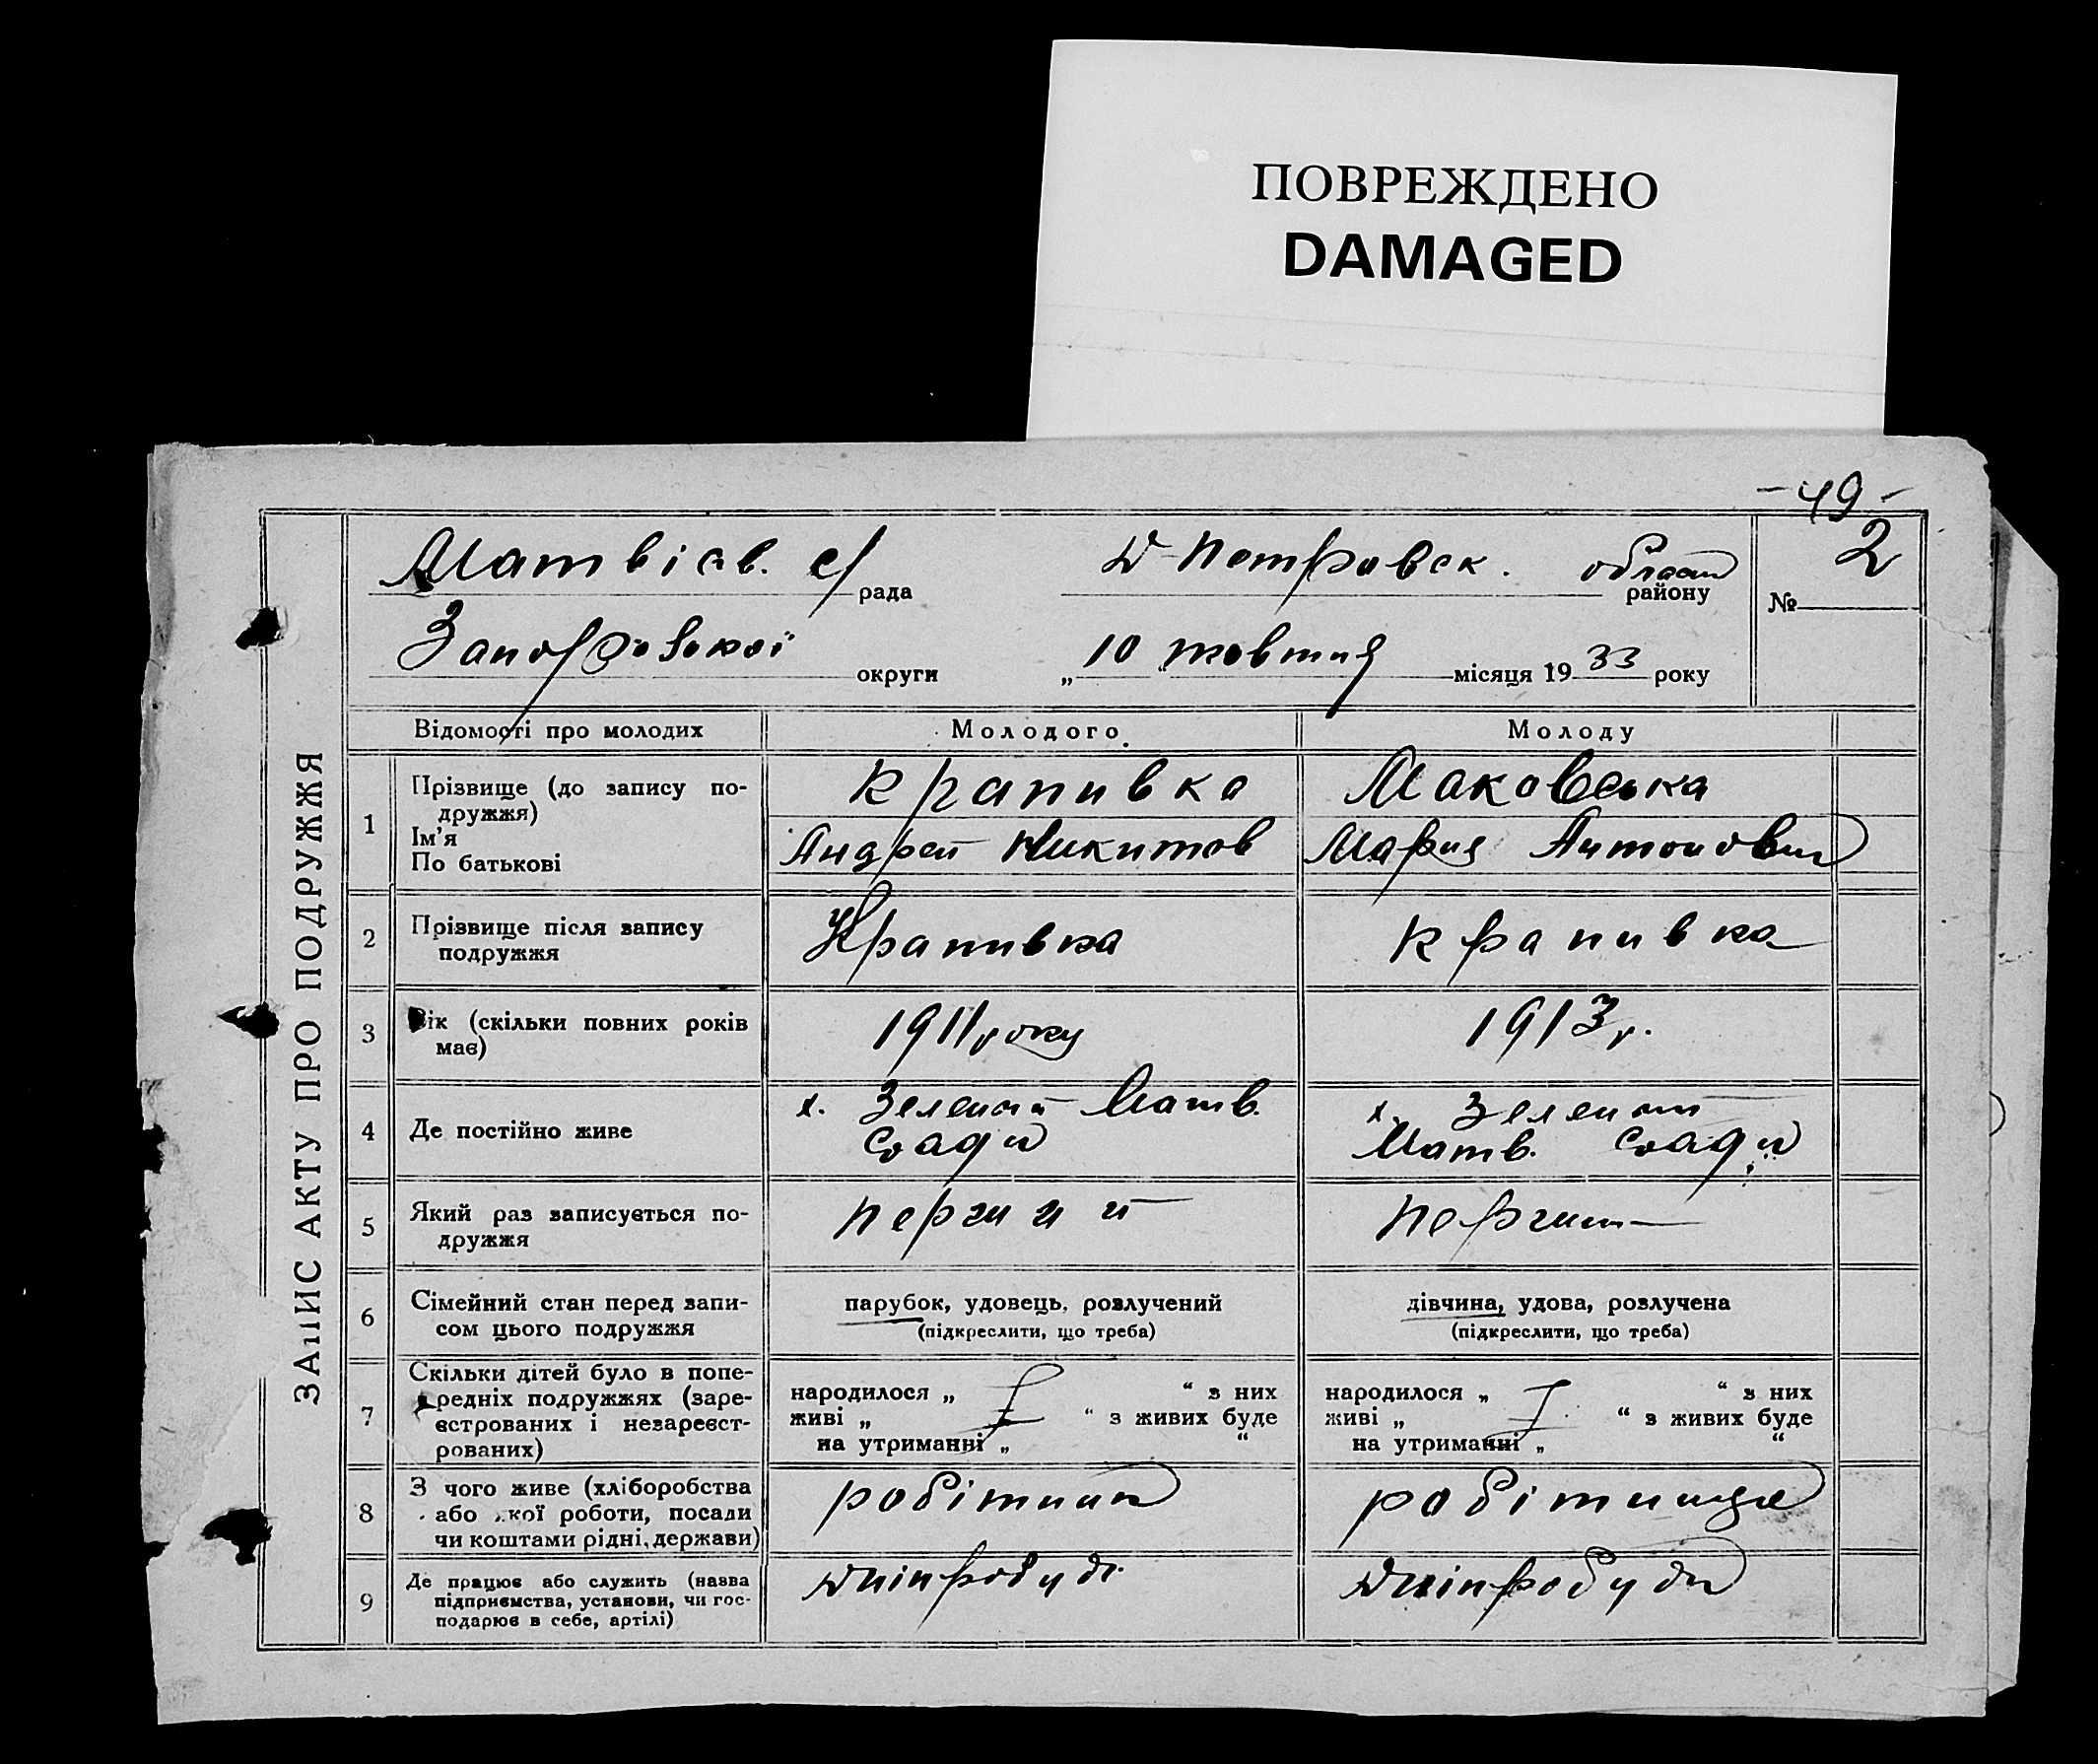 ПОВРЕЖДЕНО
DAMAGED
-49-
Матвіїв. с/рада Д-Петровск. област району № 2
Запорізької округи „10 жовтня місяця 1933 року
ЗАПИС АКТУ ПРО ПОДРУЖЖЯ
Відомості про молодих Молодого Молоду
1 Прізвище (до запису по-
дружжя)
Ім'я
По батькові
Крапивка Маковська
Андрей Никитов Мария Антонович
2 Прізвище після запису
подружжя
Крапивка Крапивка
3 Вік (скільки повних років
має)
1911 року 1913 р.
4 Де постійно живе
х. Зелений Матв. х. Зелений
с/ради Матв. с/ради
5 Який раз записується по-
дружжя
перший перший
6 Сімейний стан перед запи-
сом цього подружжя
парубок, удовець, розлучений дівчина, удова, розлучена
(підкреслити, що треба) (підкреслити, що треба)
7 Скільки дітей було в попе-
редніх подружжях (заре-
єстрованих і незареєст-
рованих)
народилося „ “ з них народилося „ “ з них
живі „ “ з живих буде живі „ “ з живих буде
на утриманні „ “ на утриманні „ “
8 З чого живе (хліборобства
або якої роботи, посади
чи коштами рідні, держави)
робітник робітниця
9 Де працює або служить (назва
підприємства, установи, чи гос-
подарює в себе, артілі)
Дніпробуд. Дніпробуды